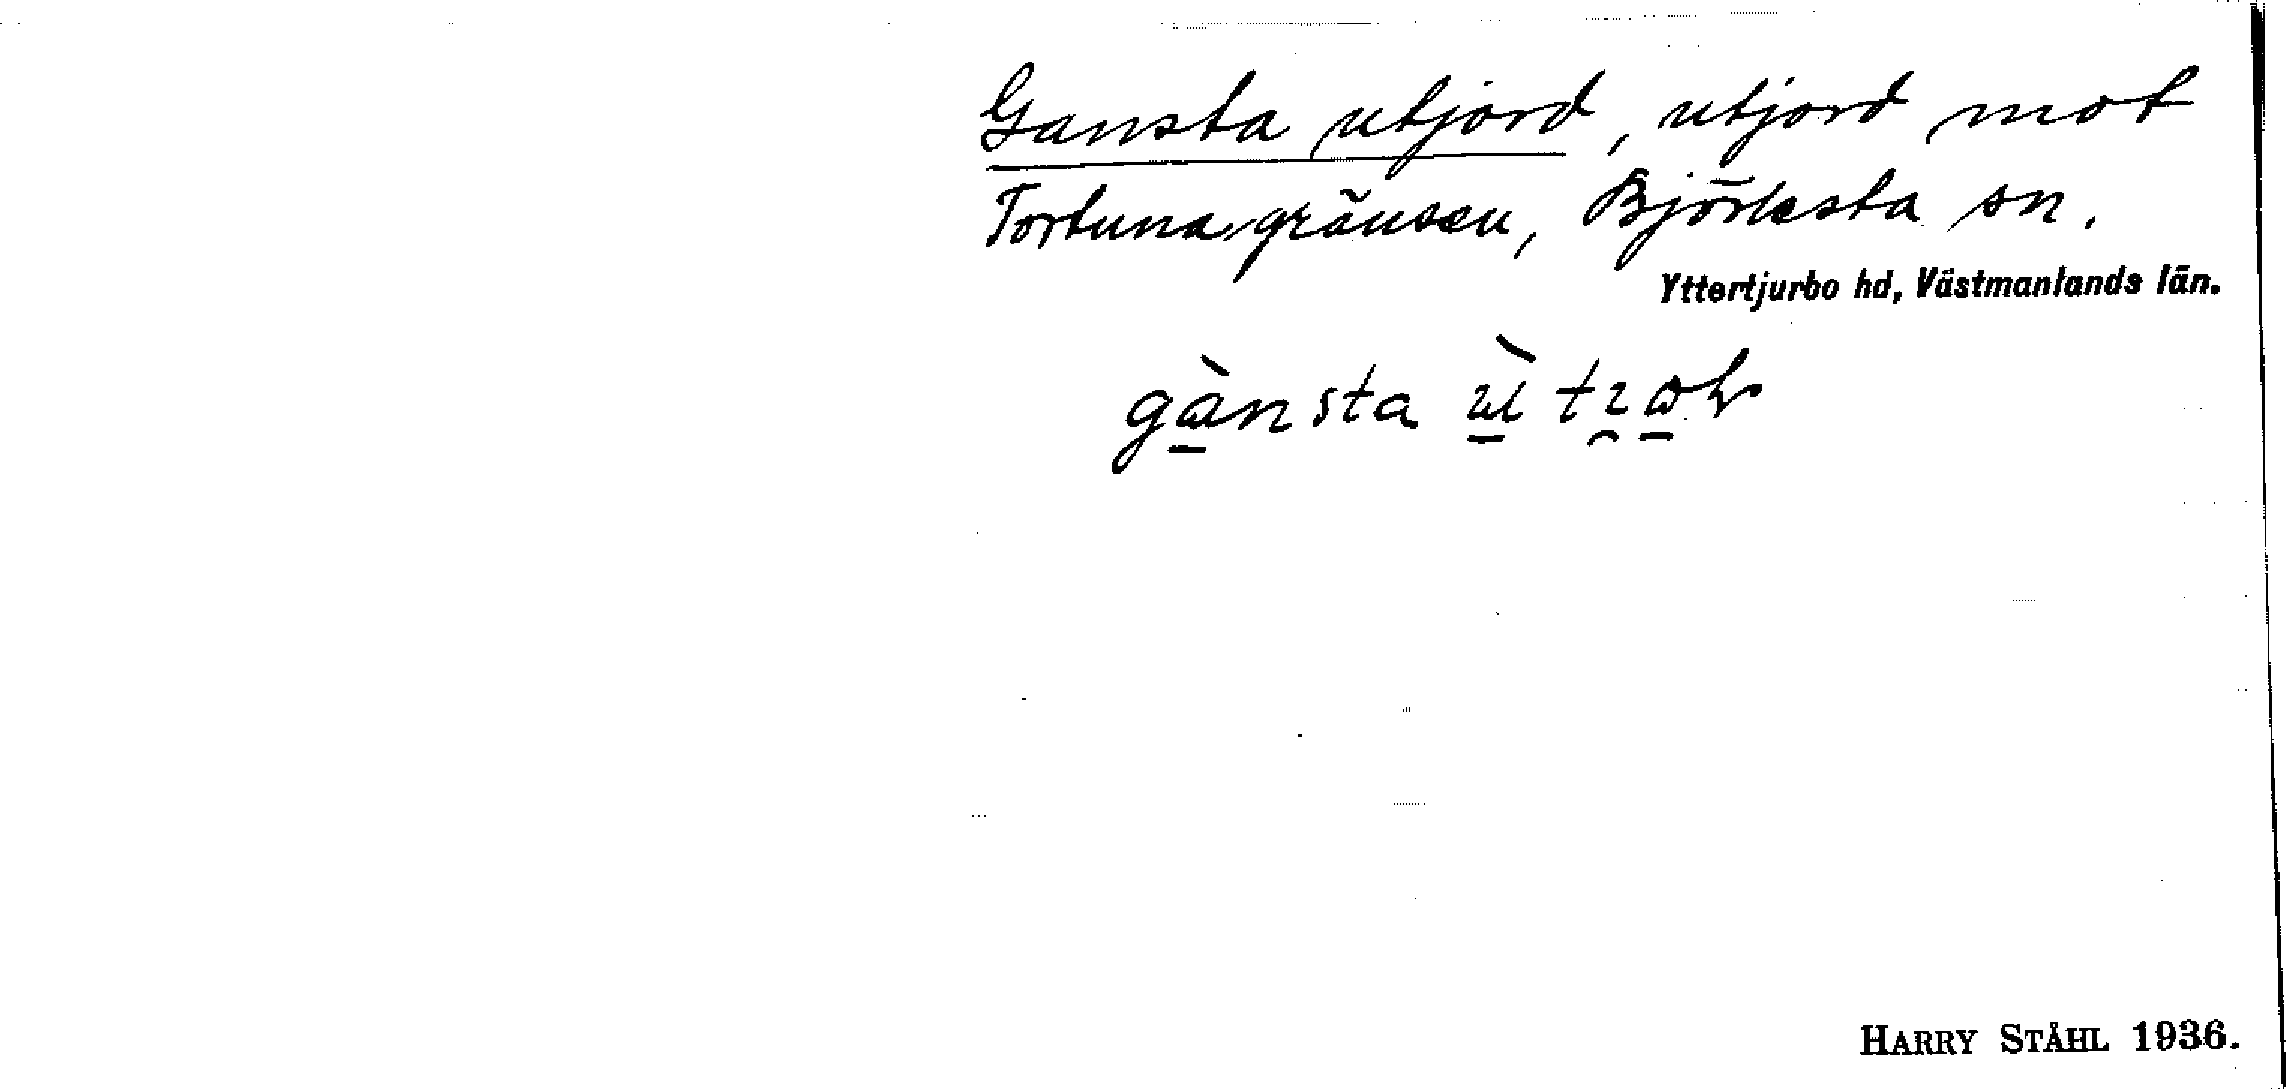 Gansta utjord, utjord mot
Tortunagränsen, Björksta sn.
Yttertjurbo hd, Västmanlands län.
gànsta
HARRY STÅHL 1936.